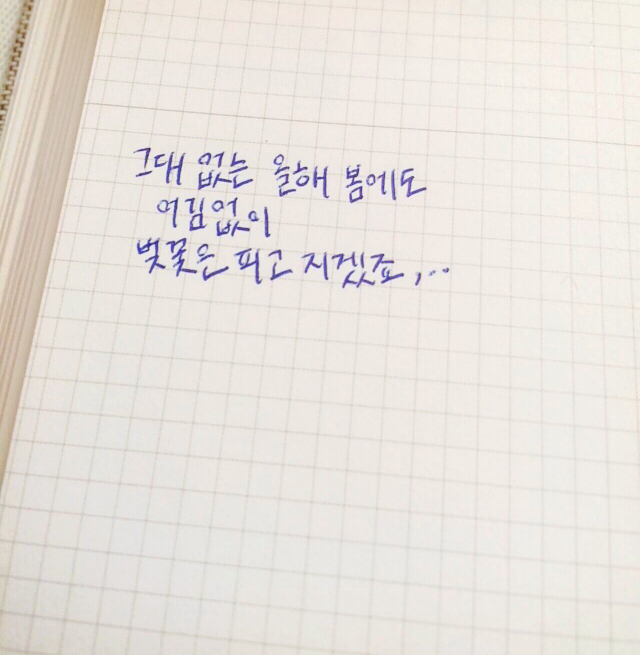 그대 없는 올해 봄에도
어김없이
벚꽃은 피고 지겠죠,..